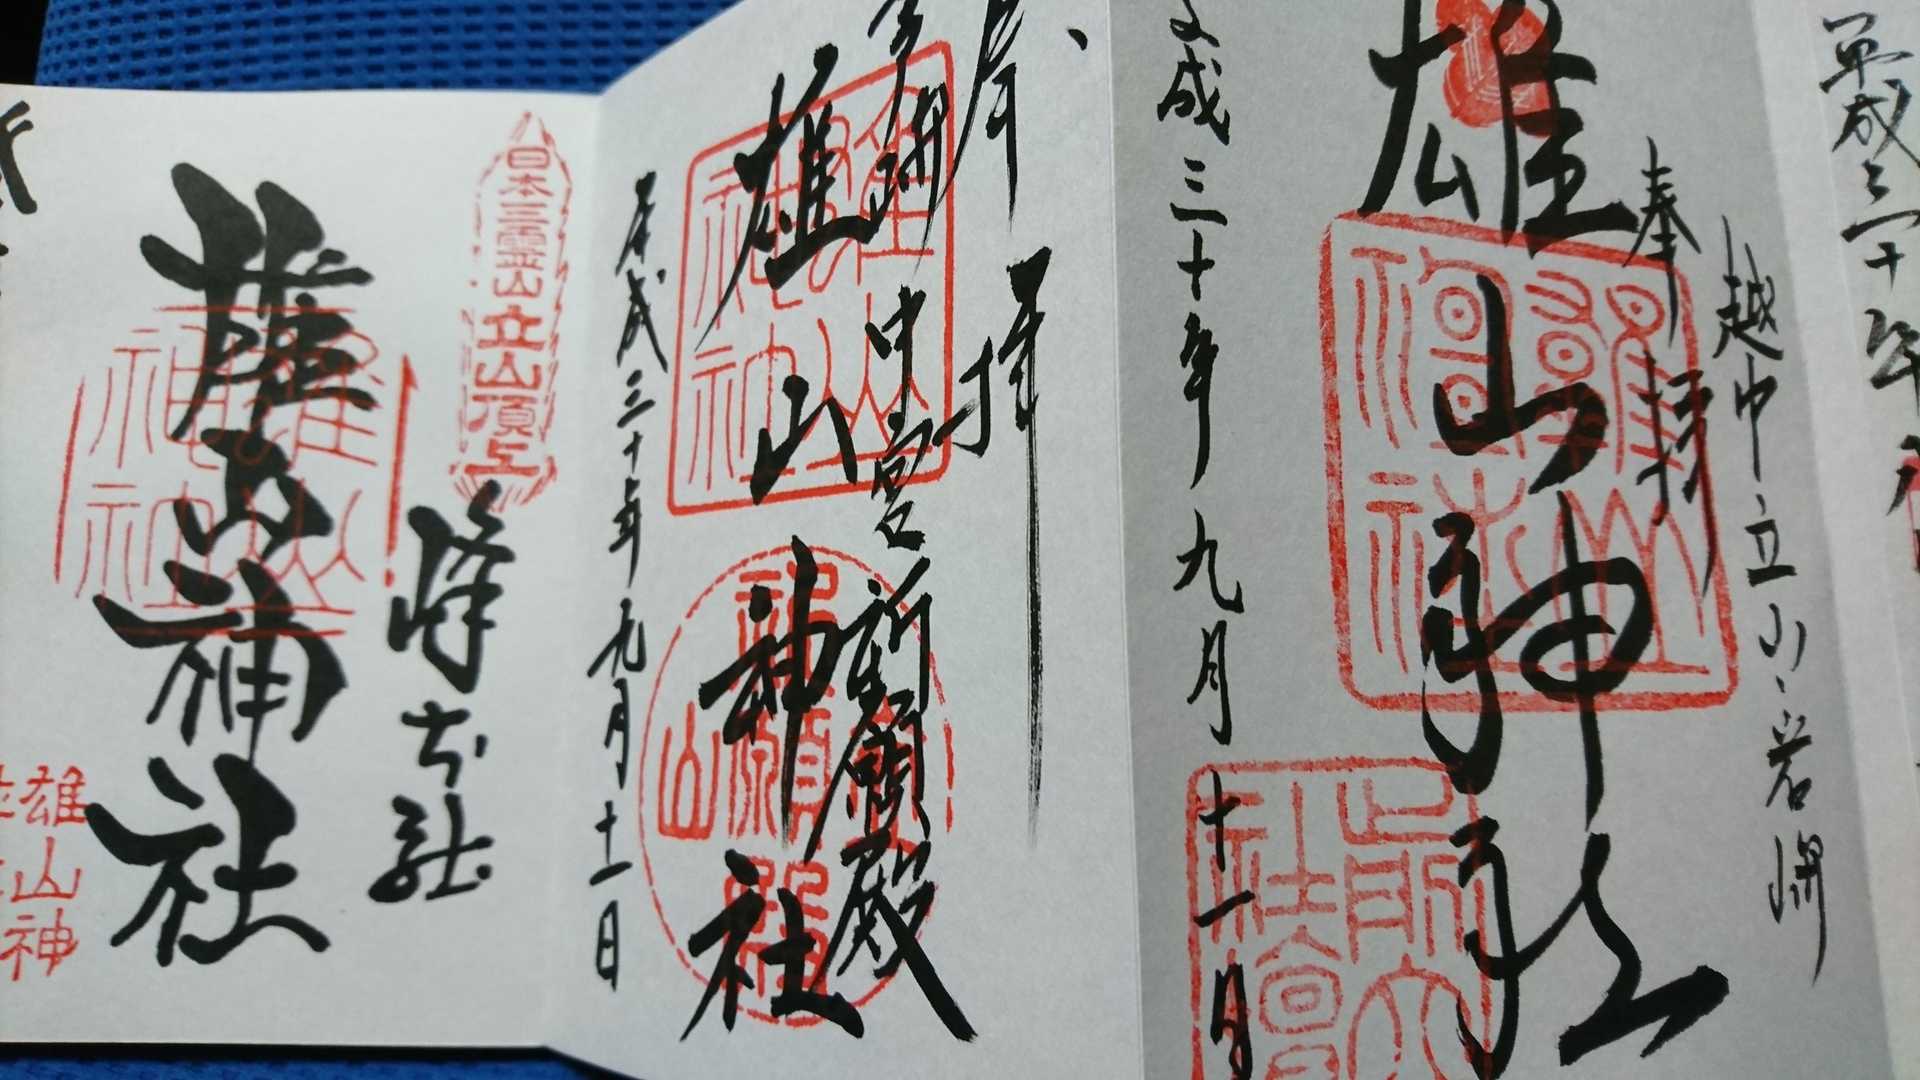 越中立山岩峅
奉拝
雄山神社
平成三十年九月十一日
奉拝
中宮祈願殿
雄山神社
平成三十年九月十一日
日本三霊山立山頂上
峰本社
雄山神社
雄山神
平成三十年